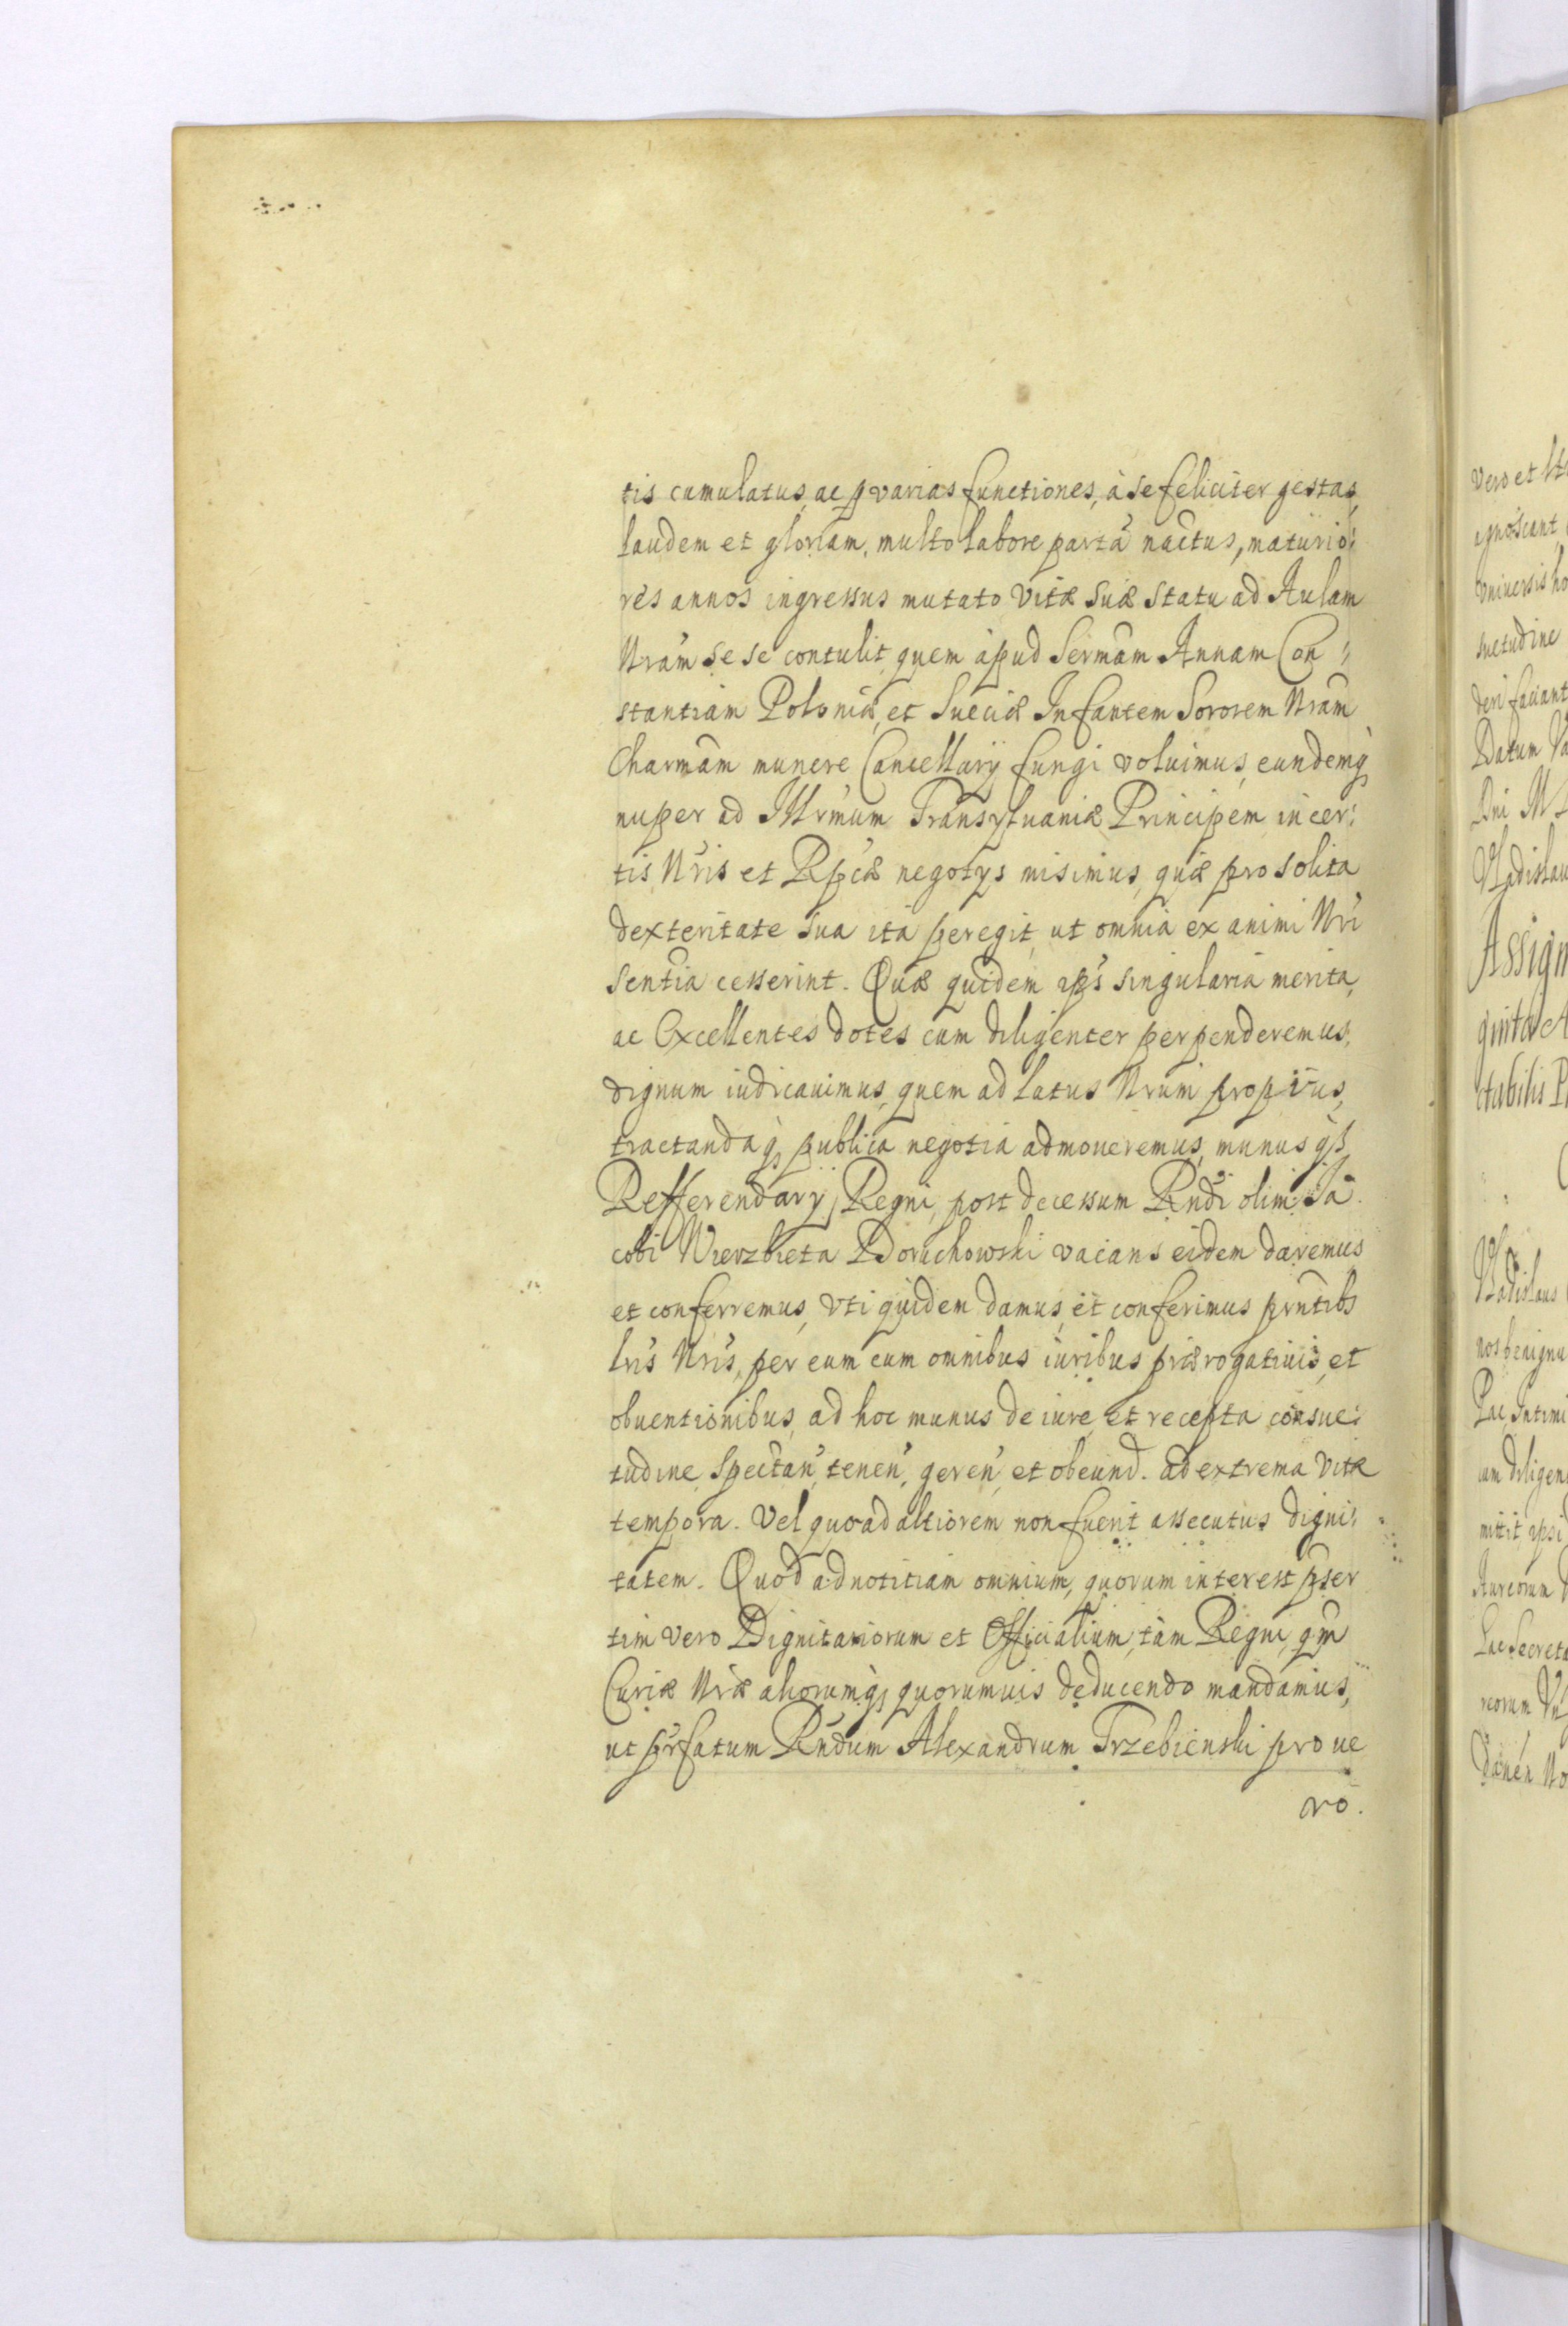 tis cumulatus, ac p varias functiones, à se feliciter gestas,
laudem et gloriam, multo labore partã nactus, maturio:
res annos ingressus mutato vitæ suæ statu ad Aulam
Nram se se contulit, quem apud Sermam Annam Con:
stantiam Poloniæ, et Sueciæ Infantem Sororem Nram
Charmam munere Cancellarij fungi voluimus, eundemq
nuper ad Illrmum Transyluaniæ Principem in cer:
tis Nris et Rpcæ negotys misimus, quæ pro solita
dexteritate sua ita peregit, ut omnia ex animi Nri
sentia cesserint. Quæ quidem ips singularia merita,
ac Excellentes dotes cum diligenter perpenderemus,
dignum iudicauimus, quem ad latus Nrum propius,
tractandaq publica negotia admoueremus, munusq
Refferendarij Regni, post decessum Rndi olim Ja
cobi Wierzbieta Doruchowski vacans eidem daremus
et conferremus, vti quidem damus, et conferimus prntibs
lris Nris, per eum cum omnibus iuribus prærogatiuis, et
obuentionibus, ad hoc munus de iure, et recepta consue:
tudine, spectan, tenen, geren, et obeund. ad extrema vitæ
tempora. Vel quoad altiorem non fuerit assecutus digni:
tatem. Quod ad notitiam omnium, quorum interest pser
tim vero Dignitariorum et Officialium, tàm Regni, qm
Curiæ Nræ aliorumq quorumuis deducendo mandamus,
ut prfatum Rndum Alexandrum Trzebienski pro ve
ro.
vero et
agnoscant,
vniuersis
suetudine
deri faciant
Datum
Dni M
Vladislau
Assign
ctabilis
Vladislaus
nos benignu
Rac Intimi
am diligen
mitit ipsi
Aureorum
Lac Secret
reorum
Danen